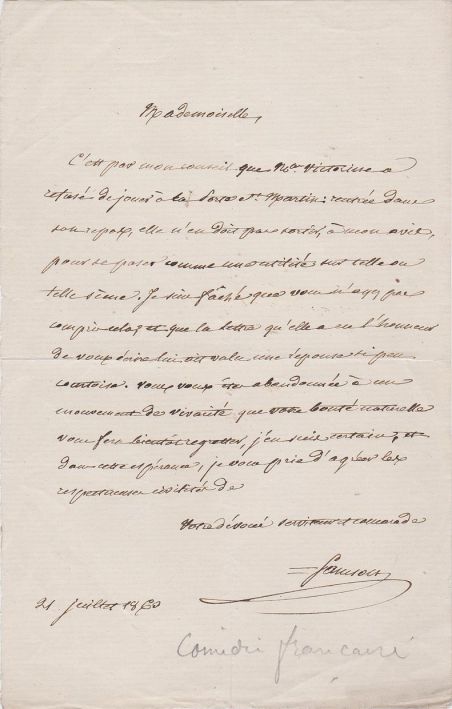 Mademoiselle,
C'est par mon conseil que Mme Victorine a
refusé de jouer à la Porte St. Martin : rentrée dans
son repos, elle n'en doit pas sortir, à mon avis,
pour se poser comme une utilité sur telle ou
telle scène. Je suis fâché que vous n'ayez pas
compris cela, et que la lettre qu'elle a eu l'honneur
de vous écrire lui ait valu une réponse si peu
courtoise. Vous vous êtes abandonnée à un
mouvement de vivacité que votre bonté naturelle
vous fera bientôt regretter, j'en suis certain, et
dans cette espérance, je vous prie d'agréer les
respectueuses civilités de
Votre dévoué serviteur et camarade
Samson
21 juillet 1860
Comédie française